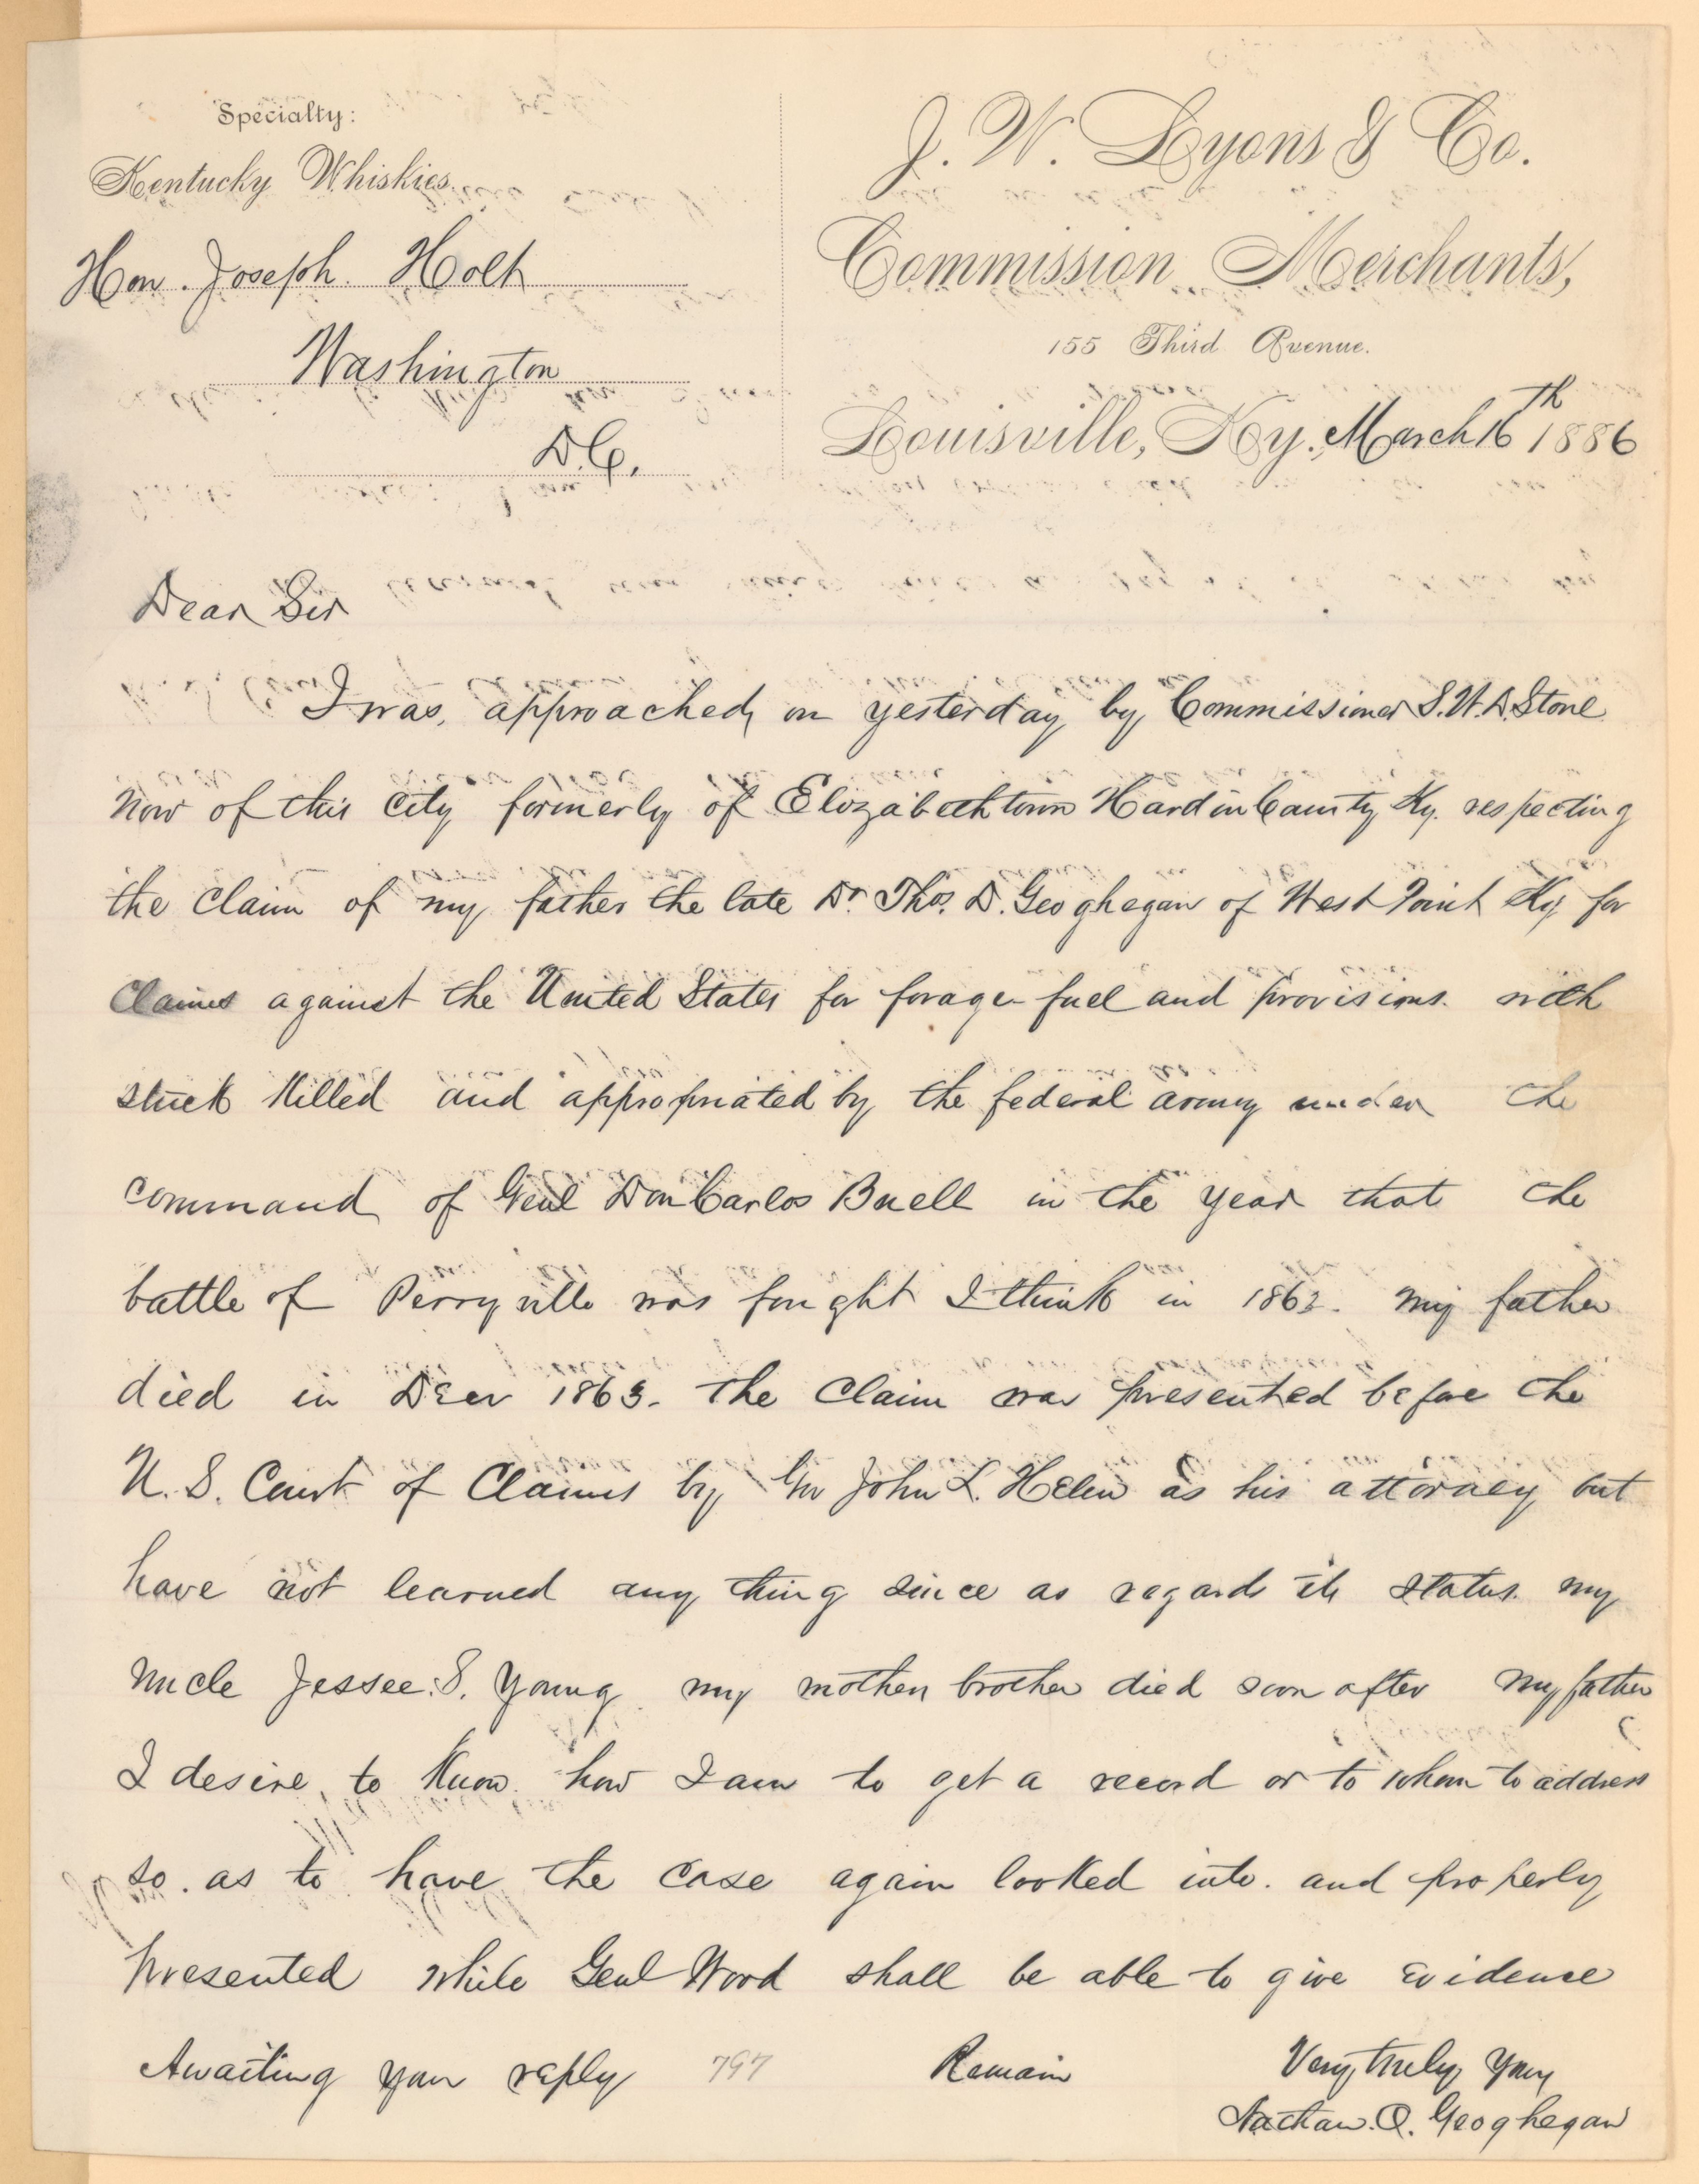 Specialty:
Kentucky Whiskies.
J. W. Lyons & Co.
Commission Merchants,
155 Third Avenue.
Louisville, Ky. March 16th 1886
Hon. Joseph Holt
Washington
D.C.
Dear Sir
I was approached on yesterday by Commissioner S.H.D. Stone
now of this city formerly of Elizabethtown Hardin County Ky. respecting
the claim of my father the late Dr. Thos. D. Geoghegan of West Point Ky for
claims against the United States for forage fuel and provisions. with
stock killed and appropriated by the federal army under the
command of Genl Don Carlos Buell in the year that the
battle of Perryville was fought I think in 1862. my father
died in Decr 1863. the claim was presented before the
U. S. Court of Claims by Gov John L. Helm as his attorney but
have not learned any thing since as regards its status. my
uncle Jessee. S. Young my mothers brother died soon after my father
I desire to know how I am to get a record or to whom to address
so. as to have the case again looked into. and properly
presented while Genl Wood shall be able to give evidence
Awaiting your reply 797 Remain Very truly yours
Nathan. Q. Geoghegan